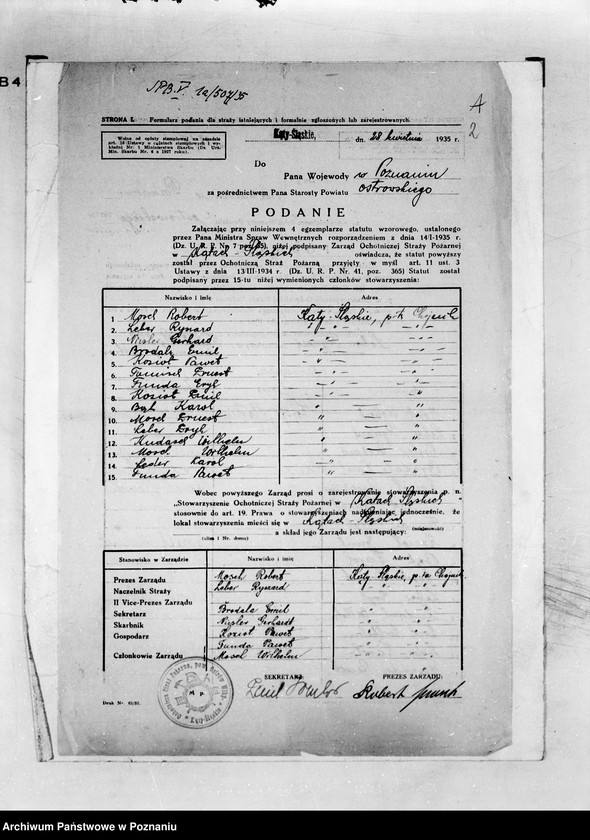 B4
A
2
STRONA I. Formularz podania dla straży istniejących i formalnie zgłoszonych lub zarejestrowanych.
Wolne od opłaty stemplowej na zasadzie
art. 16 Ustawy o opłatach stemplowych i wy-
Min. Skarbu Nr. 6 z 1927 roku).
Kąty-Śląskie, dn. 28 kwietnia 1935 r.
Do
Pana Wojewody w Poznaniu
za pośrednictwem Pana Starosty Powiatu ostrowskiego
PODANIE
Załączając przy niniejszem 4 egzemplarze statutu wzorowego, ustalonego
przez Pana Ministra Spraw Wewnętrznych rozporządzeniem z dnia 14/I-1935 r.
(Dz. U. R. P. Nr 7 poz. 35), niżej podpisany Zarząd Ochotniczej Straży Pożarnej
w Kątach-Śląskich oświadcza, że statut powyższy
został przez Ochotniczą Straż Pożarną przyjęty w myśl art. 11 ust. 3
Ustawy z dnia 13/III-1934 r. (Dz. U. R. P. Nr. 41, poz. 365) Statut został
podpisany przez 15-tu niżej wymienionych członków stowarzyszenia:
Nazwisko i imię Adres
1 Mosch Robert Kąty-Śląskie, p-ta Chojnik
2. Leber Rynard
3. Nitzler Gerhard
4. Brodala Emil
5. Kozioł Paweł
6. Ernest
7. Funda Eryk
8. Kozioł Emil
9. Karol
10. Mosch Ernest
11. Leber Eryk
12. Wilhelm
13. Mosch Wilhelm
14. Karol
15. Funda Paweł
Wobec powyższego Zarząd prosi o zarejestrowanie stowarzyszenia p. n.
„Stowarzyszenie Ochotniczej Straży Pożarnej w Kątach Śląskich" -
stosownie do art. 19. Prawa o stowarzyszeniach nadmieniając jednocześnie, że
lokal stowarzyszenia mieści się w Kątach-Śląskich
(miejscowość)
a skład jego Zarządu jest następujący:
(ulica i Nr. domu)
Stanowisko w Zarządzie Nazwisko i imię Adres
Prezes Zarządu Mosch Robert Kąty-Śląskie, p-ta Chojnik
Naczelnik Straży Leber Ryszard
II Vice-Prezes Zarządu
Sekretarz Brodala Emil
Skarbnik Gerhardt
Gospodarz Kozioł Paweł
Funda Paweł
Członkowie Zarządu Mosch Wilhelm
SEKRETARZ PREZES ZARZĄDU:
M. p.
Emil Robert Mosch
Druk Nr. 65/35.
Archiwum Państwowe w Poznaniu